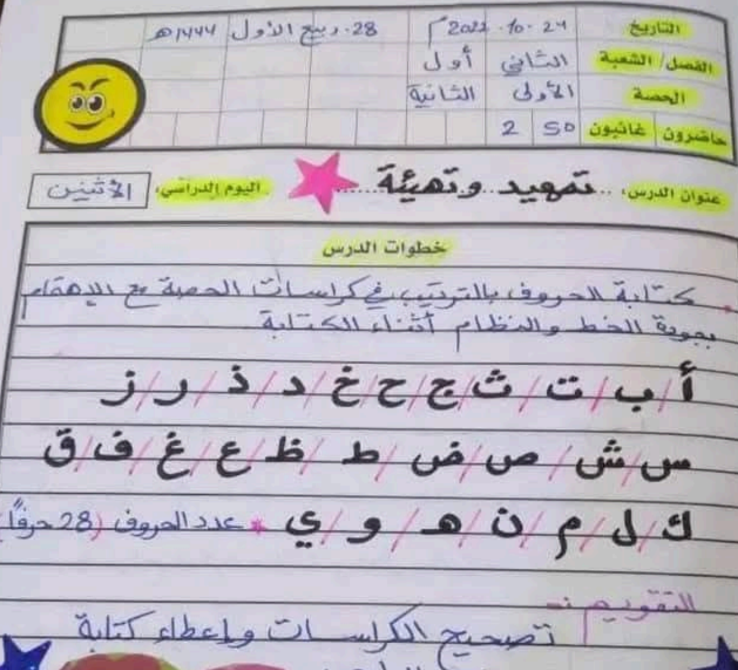 التاريخ 24 -10- 2022م 28. ربيع الأول ١٤٤٤هـ
الفصل/ الشعبة الثاني أول
الحصة الأولى الثانية
حاضرون غائبون 50 2
عنوان الدرس: تمهيد وتهيئة اليوم الدراسي: الأثنين
خطوات الدرس
كتابة الحروف بالترتيب في كراسات الحصة مع الاهتمام
بجودة الخط والنظام أثناء الكتابة
أ/ ب/ ت/ ث/ ج/ ح/ خ/ د/ ذ/ ر/ ز
س/ ش/ ص/ ض/ ط/ ظ/ ع/ غ/ ف/ ق
ك/ ل/ م/ ن/ هـ/ و/ ي * عدد الحروف (28 حرفاً)
التقويم :-
تصحيح الكراسات وإعطاء كتابة